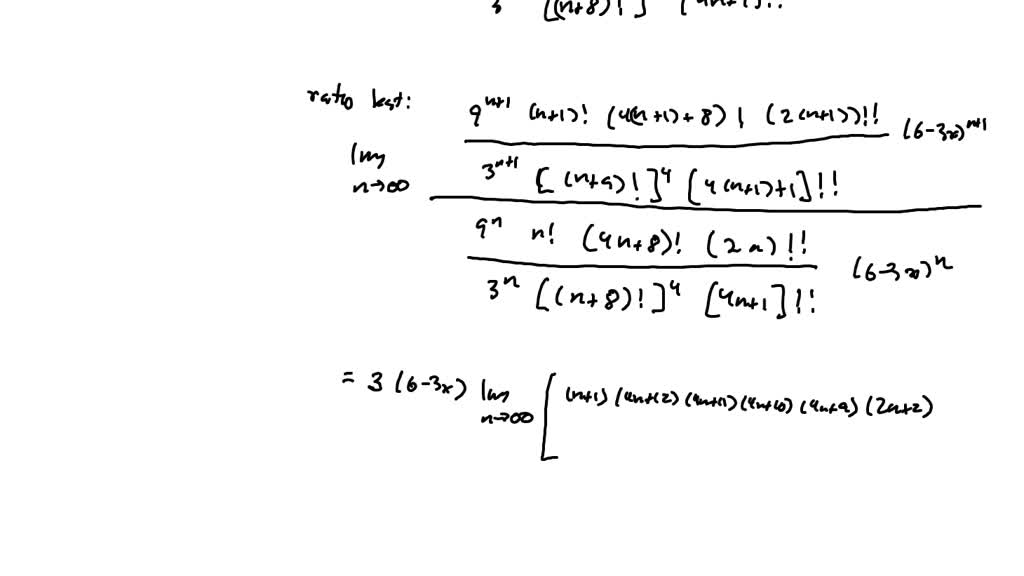 3 [(n+8)!] [4n+1]!!
ratio test:
9^{n+1} (n+1)! (4(n+1)+8)! (2(n+1))!! (6-3x)^{n+1}
lim n→∞
3^{n+1} [(n+9)!]^4 [4(n+1)+1]!!
9^n n! (4n+8)! (2n)!! (6-3x)^n
3^n [(n+8)!]^4 [4n+1]!!
= 3 (6-3x) lim n→∞ [ (n+1) (4n+12) (4n+11) (4n+10) (4n+9) (2n+2)